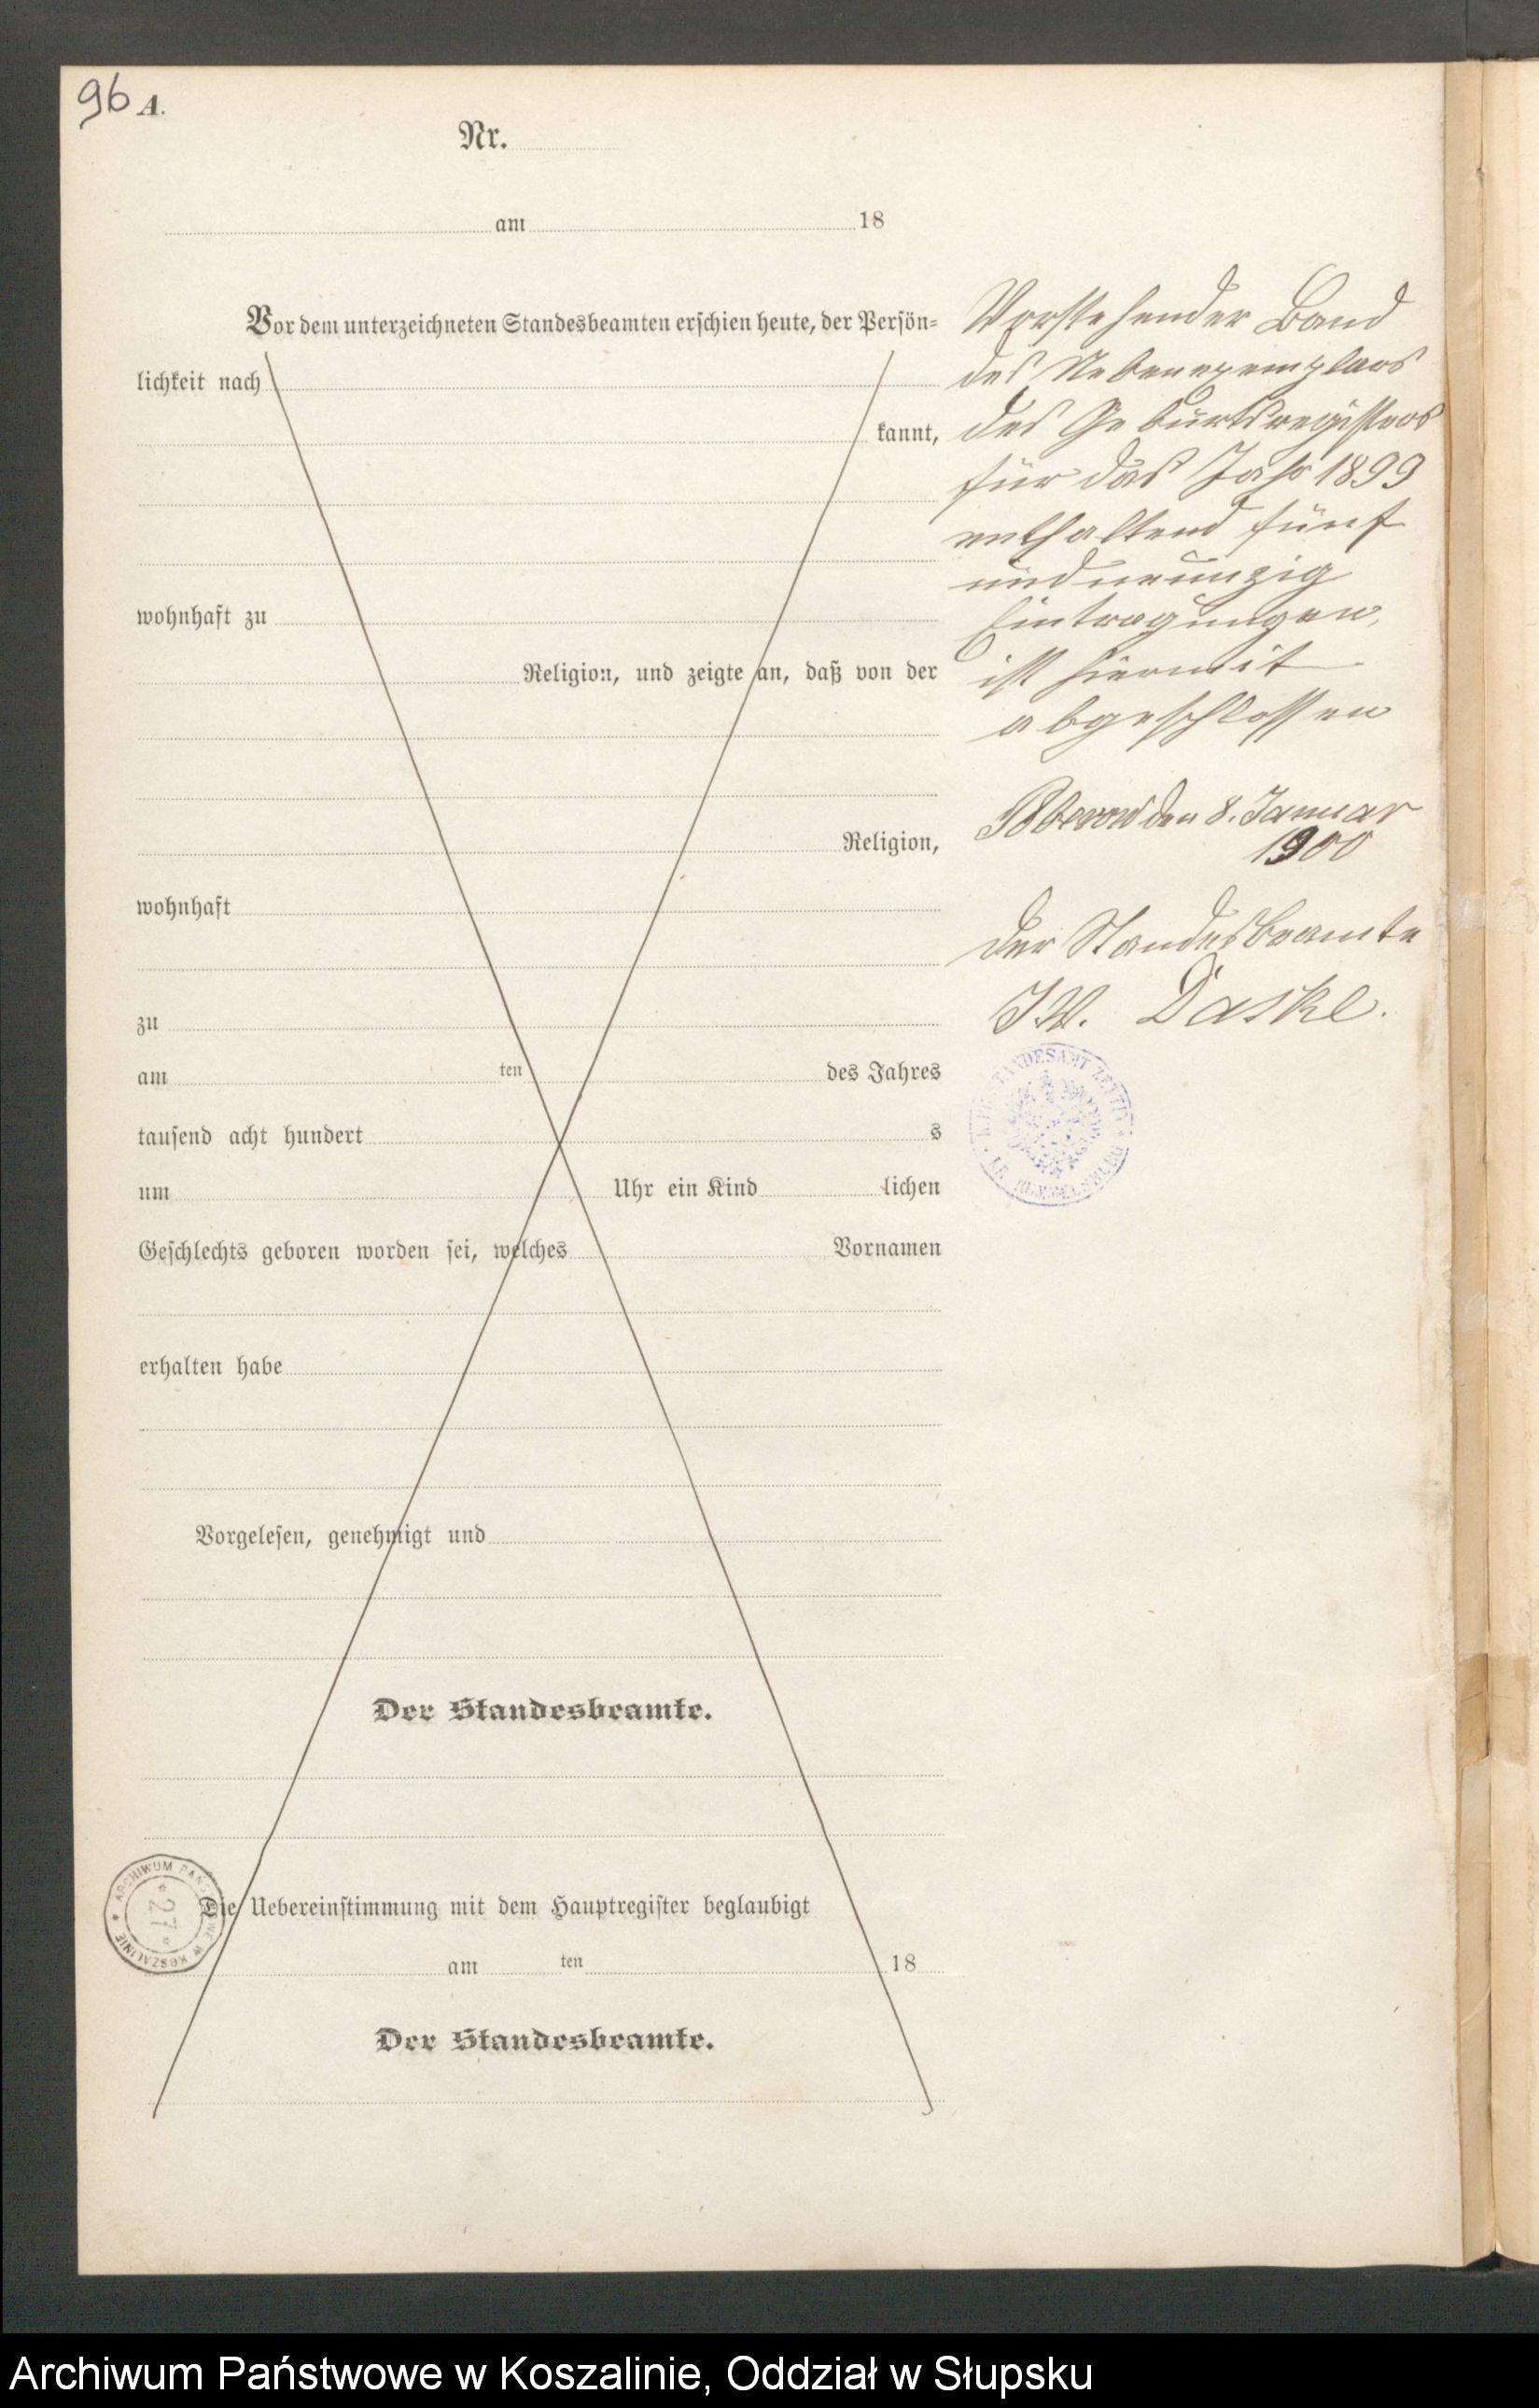 96 A.
Nr.
am 18
Vor dem unterzeichneten Standesbeamten erschien heute, der Persön=
lichkeit nach
kannt,
wohnhaft zu
Religion, und zeigte an, daß von der
Religion,
wohnhaft
zu
am ten des Jahres
tausend acht hundert s
um Uhr ein Kind lichen
Geschlechts geboren worden sei, welches Vornamen
erhalten habe
Vorgelesen, genehmigt und
Der Standesbeamte.
Die Uebereinstimmung mit dem Hauptregister beglaubigt
am ten 18
Der Standesbeamte.
Vorstehender Band
des Nebenexemplars
des Geburtsregisters
für das Jahr 1899
enthaltend fünf
undneunzig
Eintragungen,
ist hiermit
abgeschlossen
den 8. Januar
1900
Der Standesbeamte
J.V. Daske.
STANDESAMT
ARCHIWUM PAŃSTWOWE W KOSZALINIE
* 27 *
Archiwum Państwowe w Koszalinie, Oddział w Słupsku